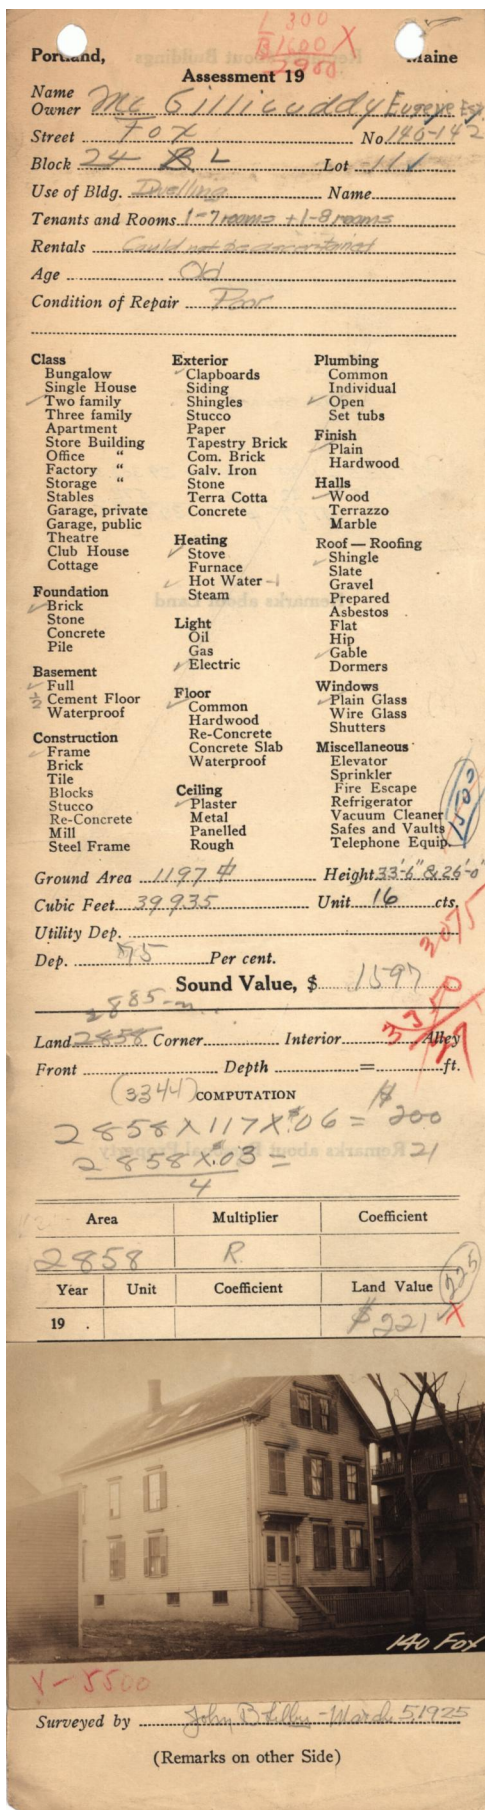 300
1600 X
Portland, Maine
Assessment 19
Name
Owner McGillicuddy Eugene Est
Street Fox No 140-142
Block 24 L Lot
Use of Bldg. Dwelling Name
Tenants and Rooms 1-7 rooms + 1-8 rooms
Rentals Could not be ascertained
Age Old
Condition of Repair Poor
Class
Bungalow
Single House
Two family
Three family
Apartment
Store Building
Office "
Factory "
Storage "
Stables
Garage, private
Garage, public
Theatre
Club House
Cottage
Foundation
Brick
Stone
Concrete
Pile
Basement
Full
½ Cement Floor
Waterproof
Construction
Frame
Brick
Tile
Blocks
Stucco
Re-Concrete
Mill
Steel Frame
Exterior
Clapboards
Siding
Shingles
Stucco
Paper
Tapestry Brick
Com. Brick
Galv. Iron
Stone
Terra Cotta
Concrete
Heating
Stove
Furnace
Hot Water -1
Steam
Light
Oil
Gas
Electric
Floor
Common
Hardwood
Re-Concrete
Concrete Slab
Waterproof
Ceiling
Plaster
Metal
Panelled
Rough
Plumbing
Common
Individual
Open
Set tubs
Finish
Plain
Hardwood
Halls
Wood
Terrazzo
Marble
Roof — Roofing
Shingle
Slate
Gravel
Prepared
Asbestos
Flat
Hip
Gable
Dormers
Windows
Plain Glass
Wire Glass
Shutters
Miscellaneous
Elevator
Sprinkler
Fire Escape
Refrigerator
Vacuum Cleaner
Safes and Vaults
Telephone Equip.
1500
Ground Area 1197 Height 33'-6" & 26'-0"
Cubic Feet 39935 Unit 16 cts.
3075
Utility Dep.
Dep. 75 Per cent.
Sound Value, $ 1597
2885
3350
Land 2858 Corner Interior Alley
Front Depth = ft.
(3344) COMPUTATION
2858 X 117 X $.06 = $200
2858 X $.03 = 21
4
Area Multiplier Coefficient
2858 R.
Year Unit Coefficient Land Value
225
19 . $221 X
140 Fox
X-5500
Surveyed by John B - March 5, 1925
(Remarks on other Side)